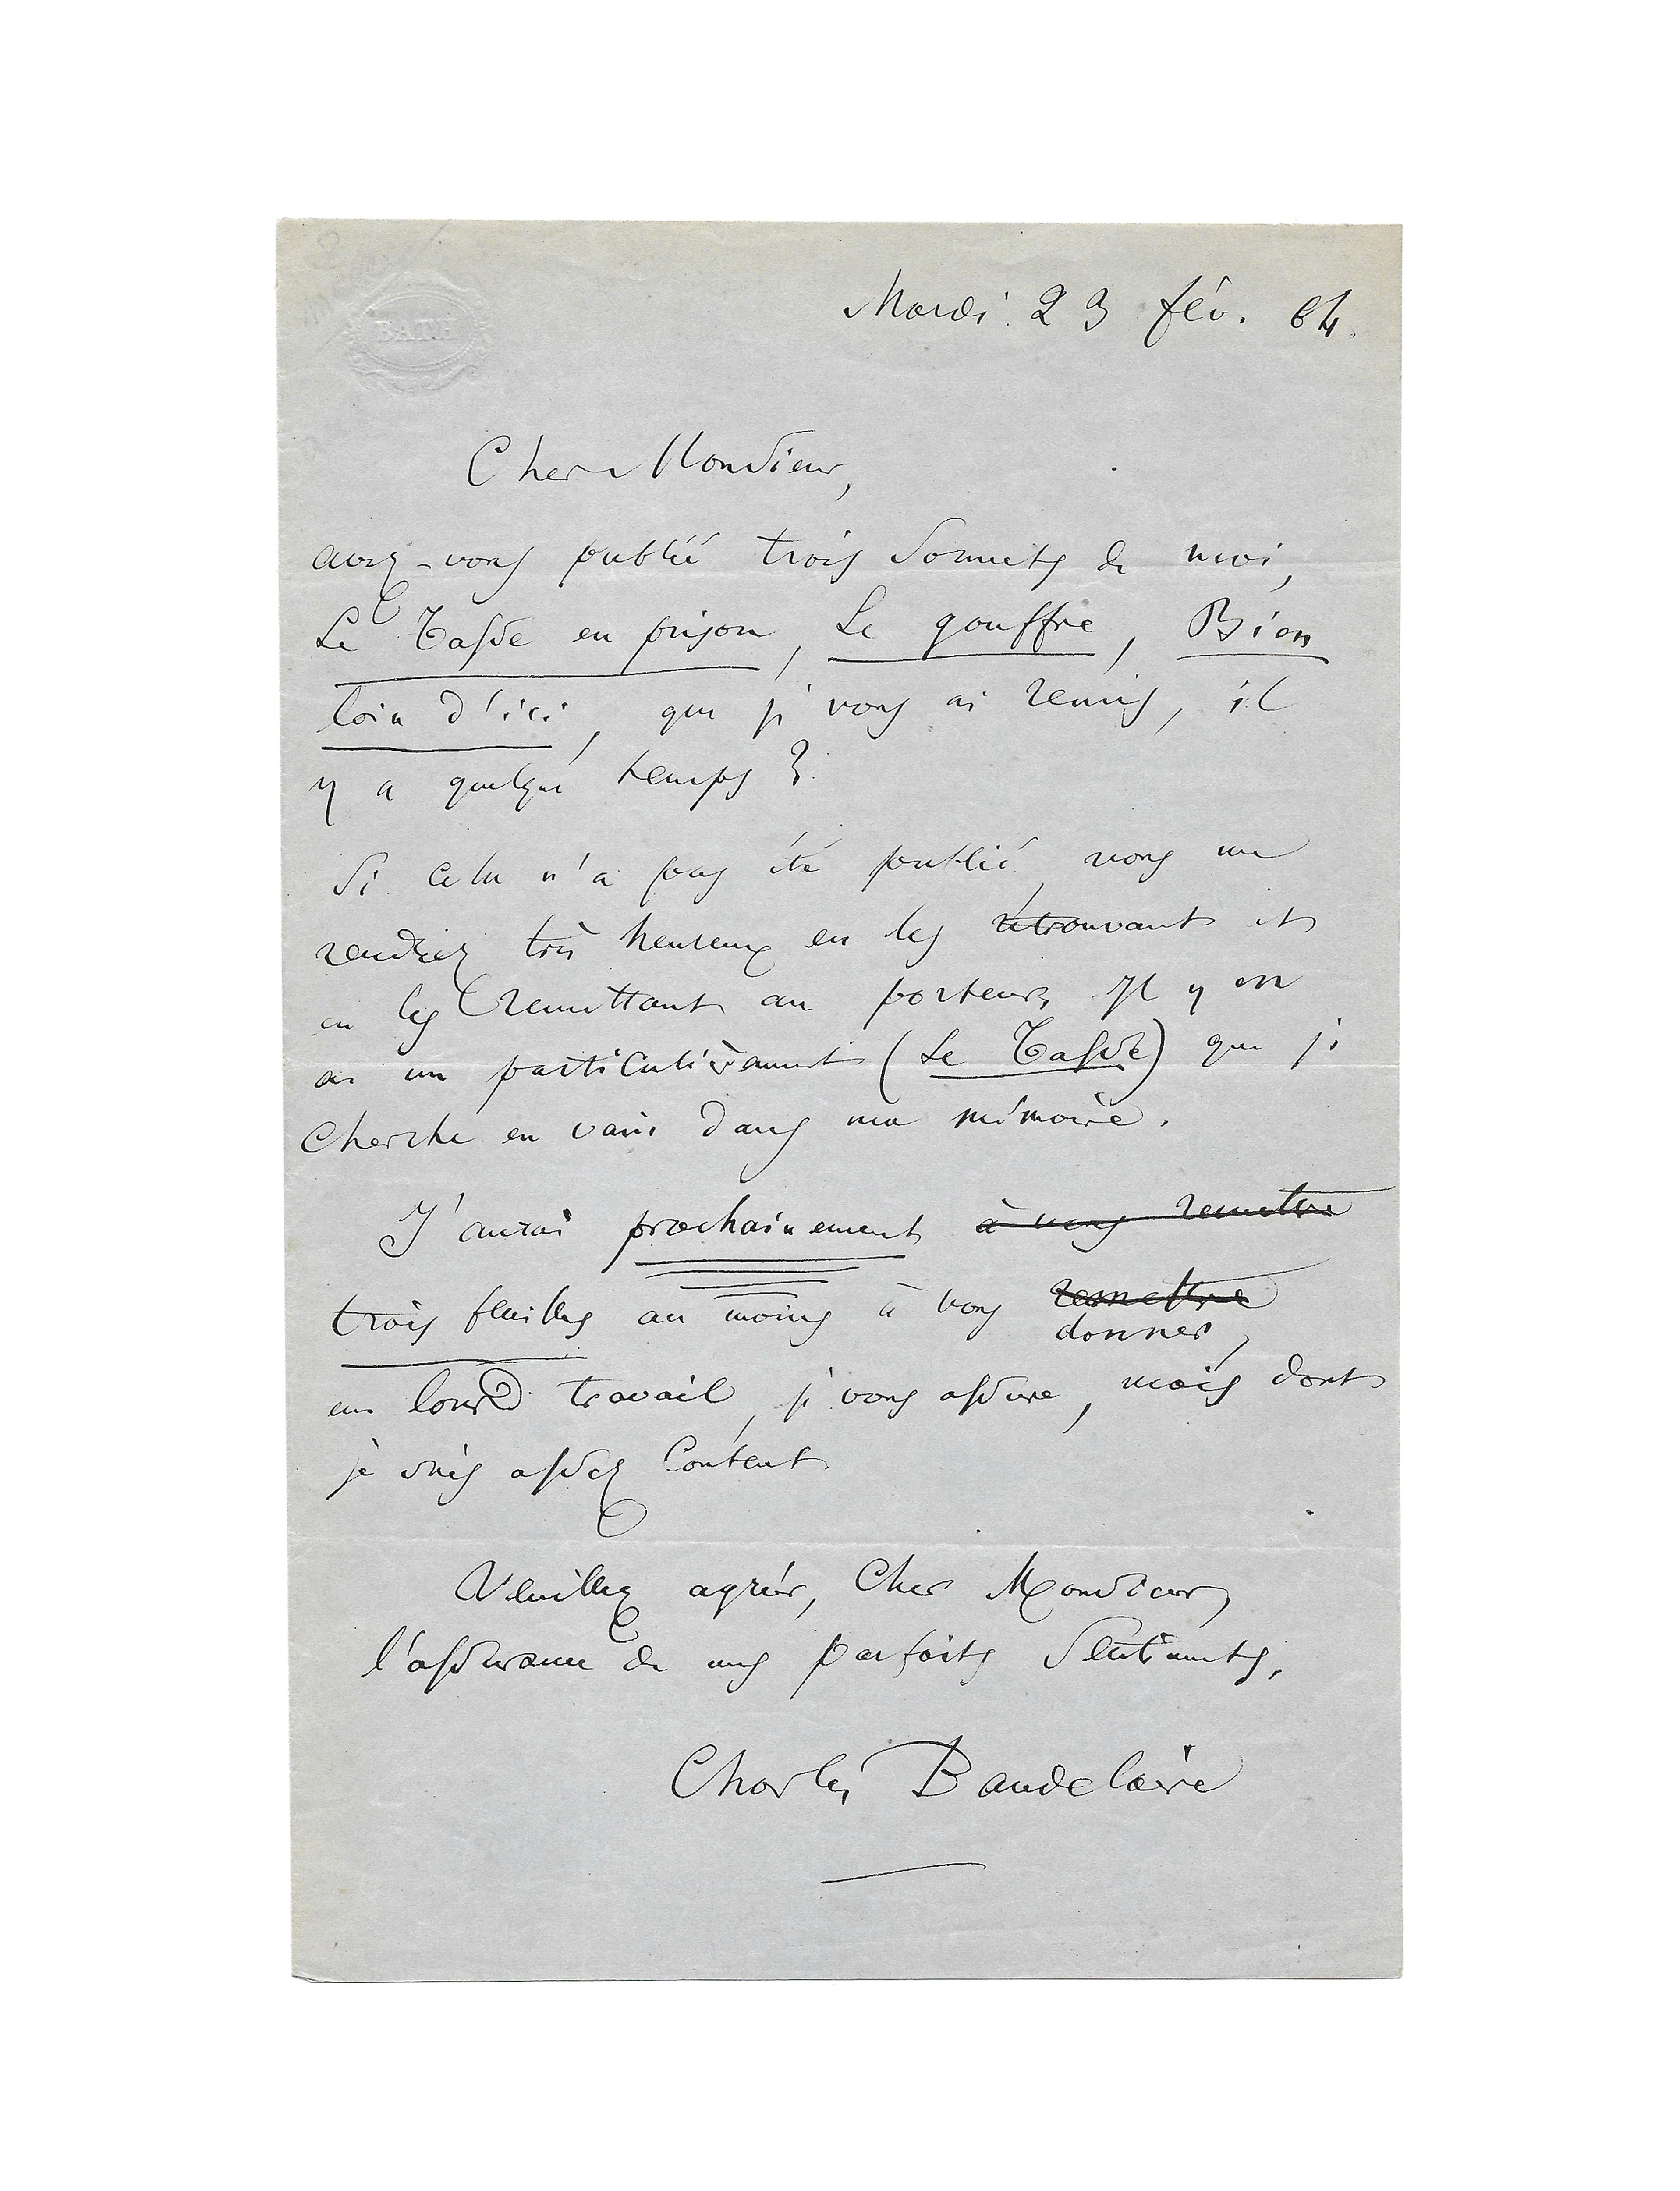 BATH
Mardi 23 fév. 64.
Cher Monsieur,
avez-vous publié trois Sonnets de moi,
Le Tasse en prison, Le gouffre, Bien
loin d'ici, que je vous ai remis, il
y a quelque temps ?
Si cela n'a pas été publié, vous me
rendriez très heureux en les retrouvant et
en les remettant au porteur. Il y en
a un particulièrement (Le Tasse) que je
cherche en vain dans ma mémoire.
J'aurai prochainement à vous remettre
trois feuilles au moins à vous remettre
donner,
un lourd travail, je vous assure, mais dont
je suis assez content
Veuillez agréer, Cher Monsieur,
l'assurance de mes parfaits sentiments,
Charles Baudelaire